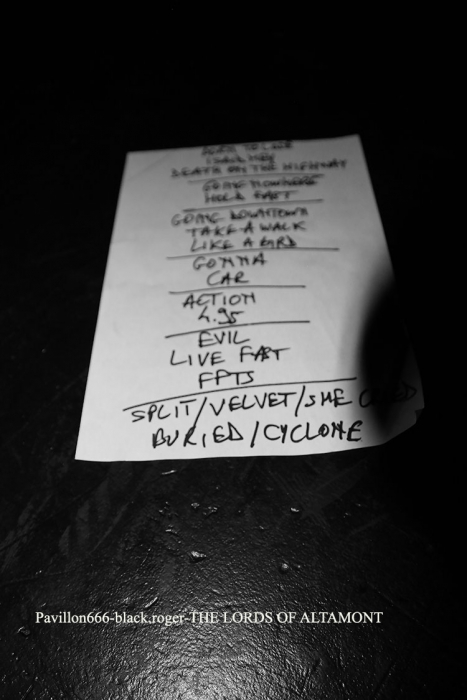 BORN TO LOSE
DEATH ON THE HIGHWAY
GOING NOWHERE
HOLD FAST
GOING DOWNTOWN
TAKE A WALK
LIKE A BIRD
GONNA
CAR
ACTION
4.95
EVIL
LIVE FAST
FPTS
SPLIT/VELVET/SHE CRIED
BURIED/CYCLONE
Pavillon666-black.roger-THE LORDS OF ALTAMONT